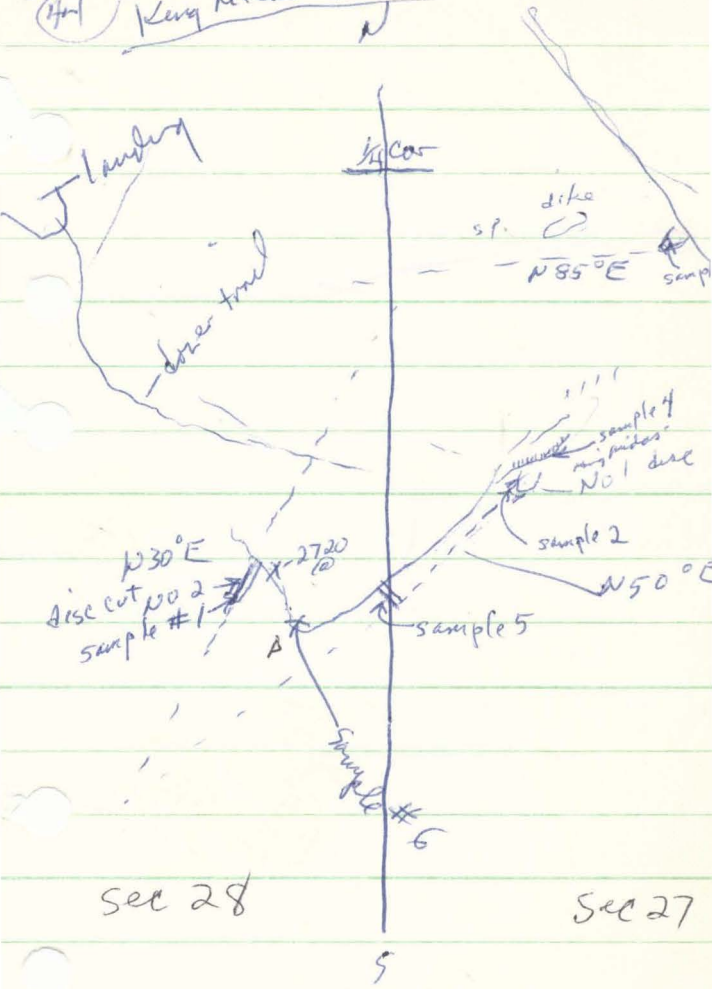 King
N
landing
1/4 Cor
dike
sp.
N85°E
sampl
dozer trail
sample 4
No 1 disc
sample 2
N50°E
N30°E
2720
disc cut No 2
sample #1
sample 5
Sample
# 6
Sec 28
Sec 27
S